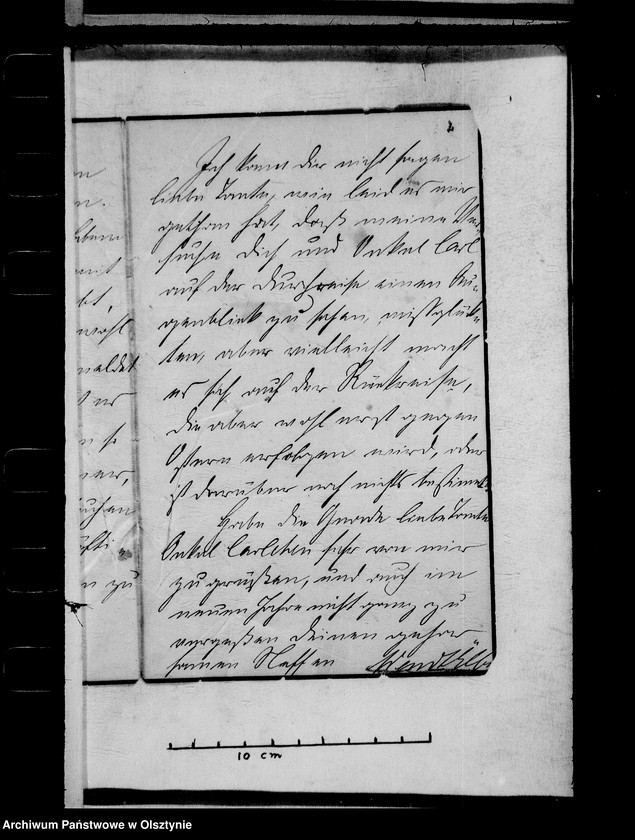 2
Ich kann Dir nicht sagen
liebe Tante, wie leid es mir
gethan hat, daß meine Ver-
suche Dich und Onkel Carl
auf der Durchreise einen Au-
genblick zu sehen, missglück-
ten, aber vielleicht macht
es sich auf der Rückreise,
die aber wohl erst gegen
Ostern erfolgen wird, oder
ist darüber noch nichts bestimmt.
Habe die Gnade liebe Tante
Onkel Carlchen sehr von mir
zu grüßen, und auch im
neuen Jahre nicht ganz zu
vergeßen Deinen gehor-
samen Neffen
wohl
meldet
es
so
zu
10 cm
Archiwum Państwowe w Olsztynie